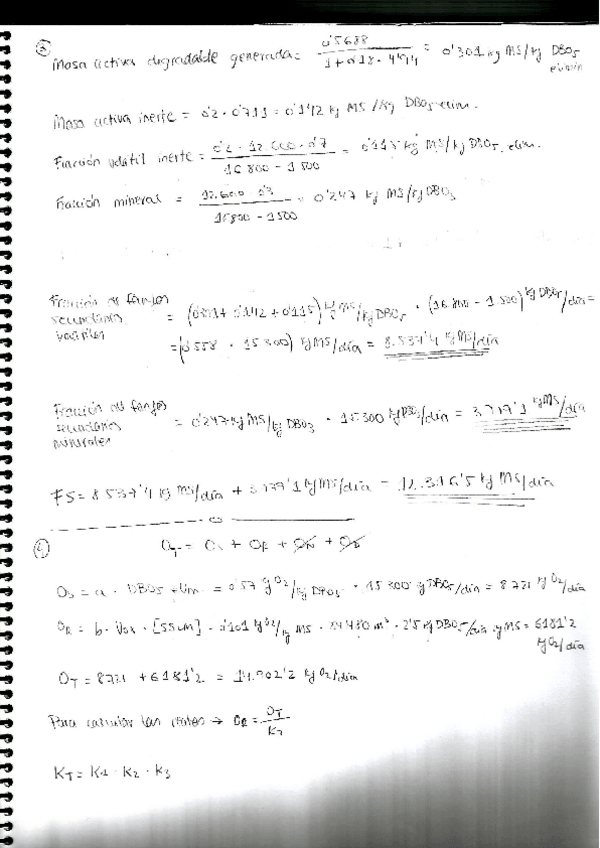 ③
Masa activa degradable generada = 0'5688 / 1+0'18·4'94 = 0'301 kg MS/kg DBO5 elimin
Masa activa inerte = 0'2 · 0'711 = 0'142 kg MS/kg DBO5 elim.
Fracción volátil inerte = 0'2 · 12.600 · 0'7 / 16800 - 1500 = 0'115 kg MS/kg DBO5 elim.
Fracción mineral = 12.600 · 0'3 / 16800 - 1500 = 0'247 kg MS/kg DBO5
Fracción de fangos
secundarios
volátiles
= (0'301 + 0'142 + 0'115) kg MS/kg DBO5 · (16.800 - 1.500) kg DBO5/día =
= (0'558 · 15300) kg MS/día = 8.537'4 kg MS/día
Fracción de fangos
secundarios
minerales
= 0'247 kg MS/kg DBO5 · 15.300 kg DBO5/día = 3.779'1 kg MS/día
FS = 8.537'4 kg MS/día + 3.779'1 kg MS/día = 12.316'5 kg MS/día
④
OT = OS + OR +
OS = a · DBO5 elim = 0'57 g O2/kg DBO5 · 15300 kg DBO5/día = 8721 kg O2/día
OR = b · Vol · [SSLM] = 0'101 kg O2/kg MS · 24480 m³ · 2'5 kg DBO5/día kg MS = 6181'2
kg O2/día
OT = 8721 + 6181'2 = 14.902'2 kg O2/día
Para calcular las → OR = OT / KT
KT = K1 · K2 · K3